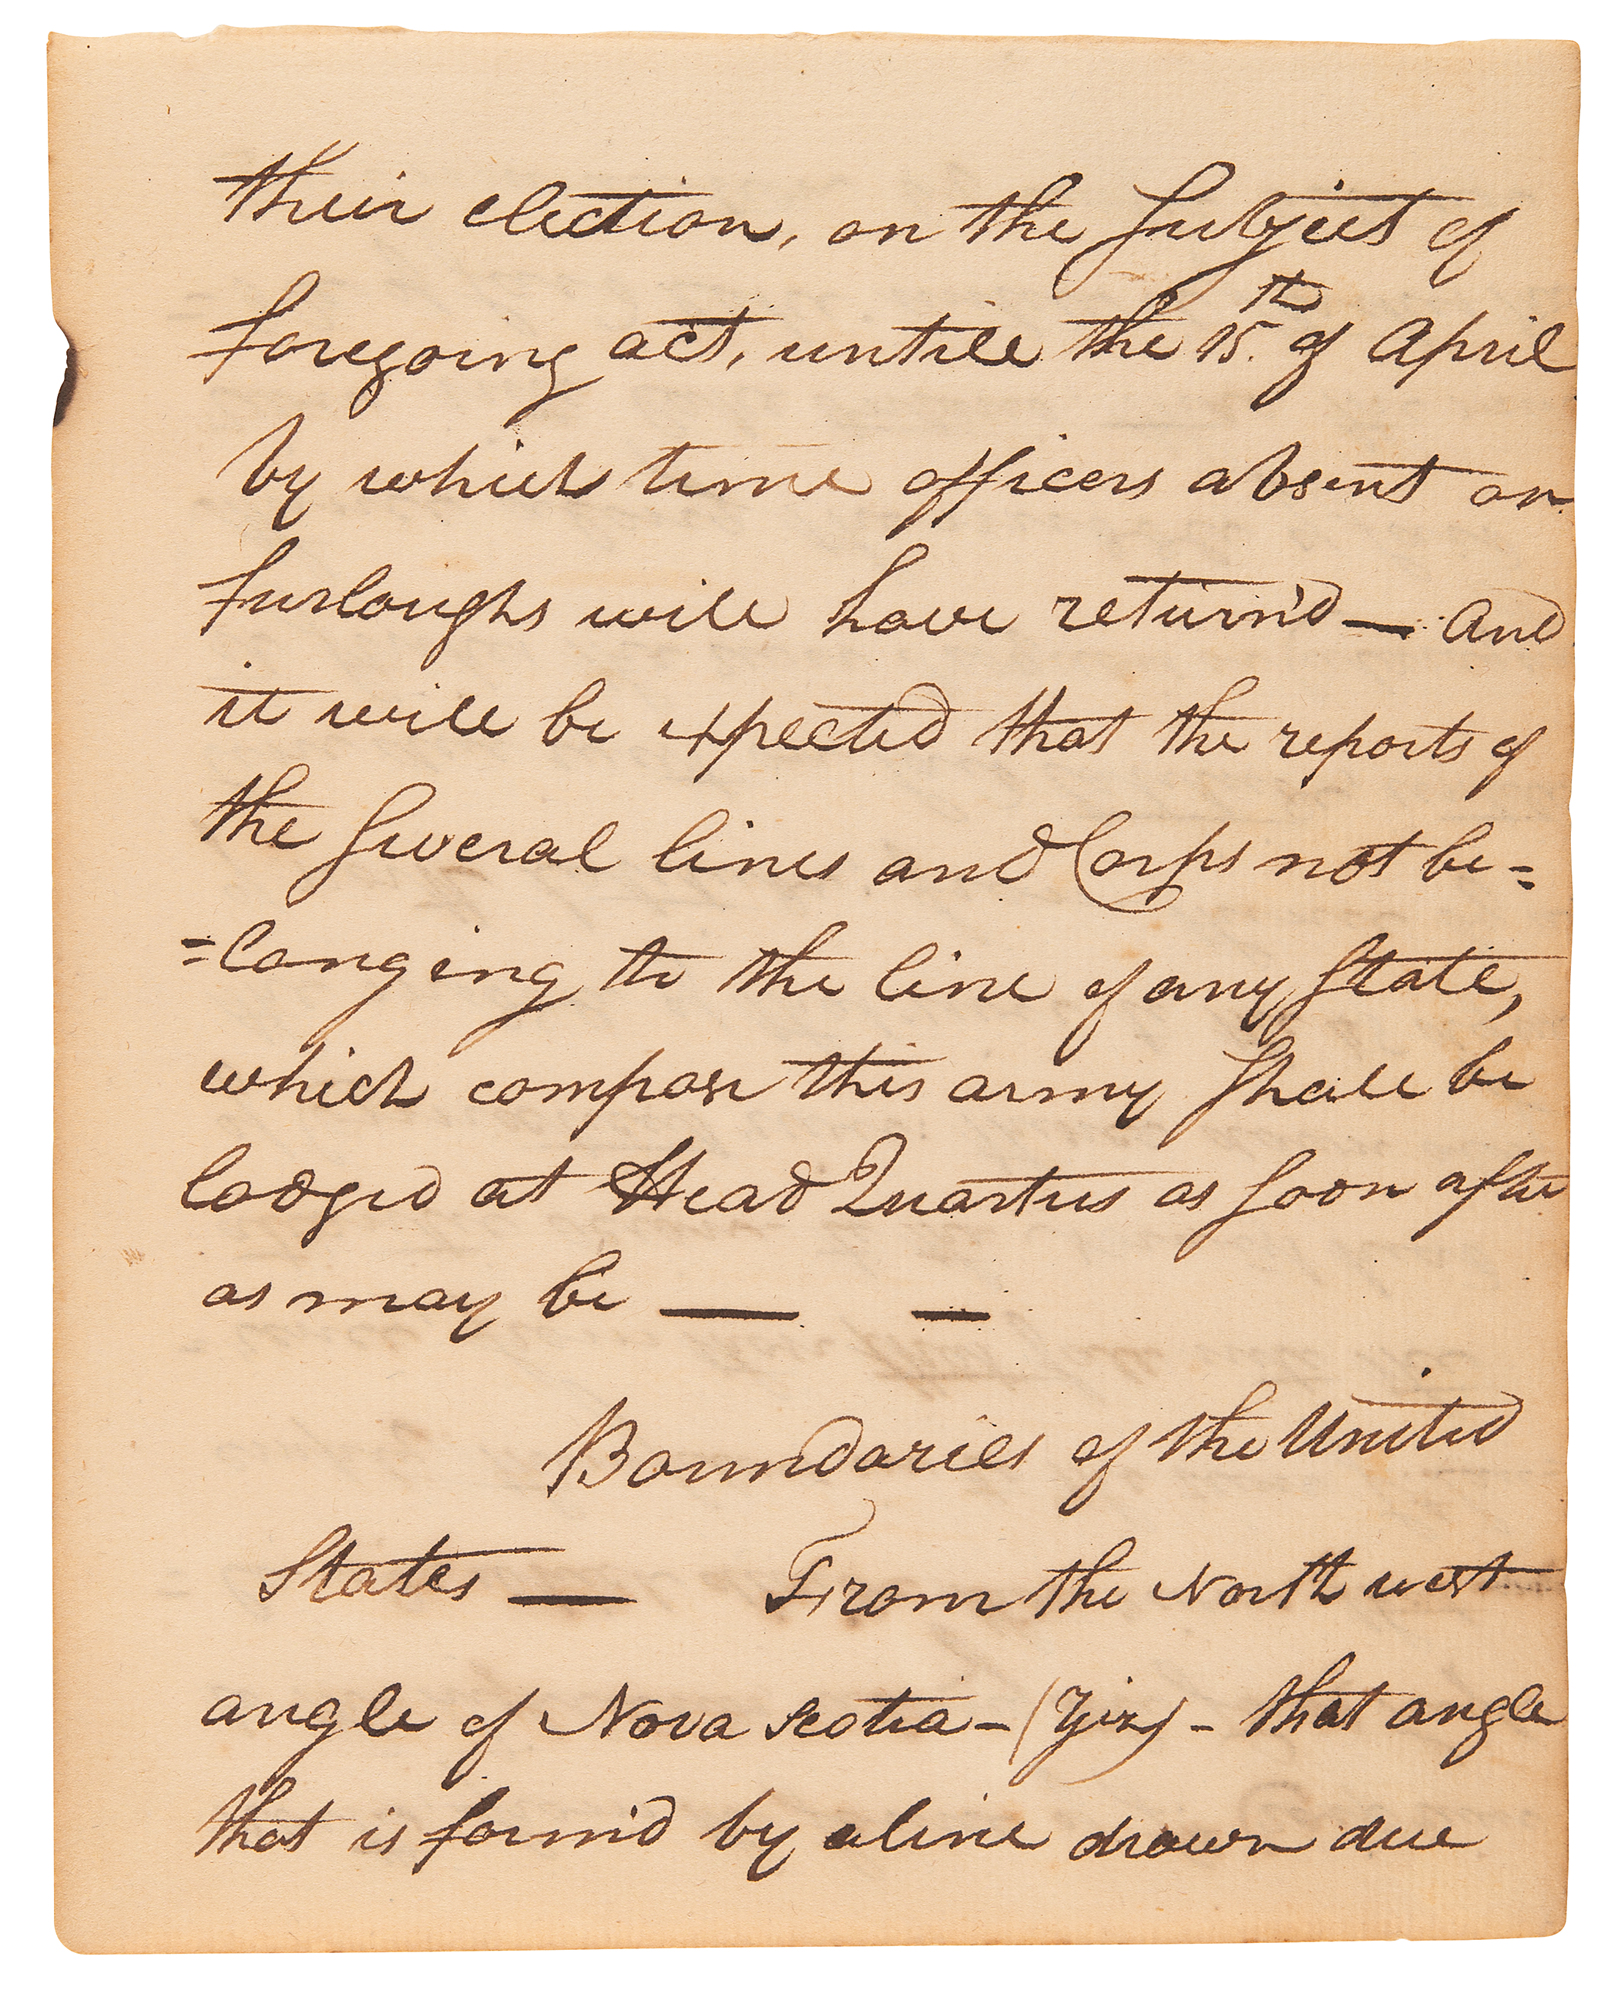 their election, on the Subject of
foregoing act, untill the 15.th of April
by which time officers absent on
furloughs will have return'd — And
it will be expected that the reports of
the Several lines and Corps not be=
=longing to the line of any State,
which compose this army Shall be
lodged at Head Quarters as Soon after
as may be — —
Boundaries of the United
States — From the North west
angle of Nova Scotia - (Viz) - that angle
that is form'd by a line drawn due